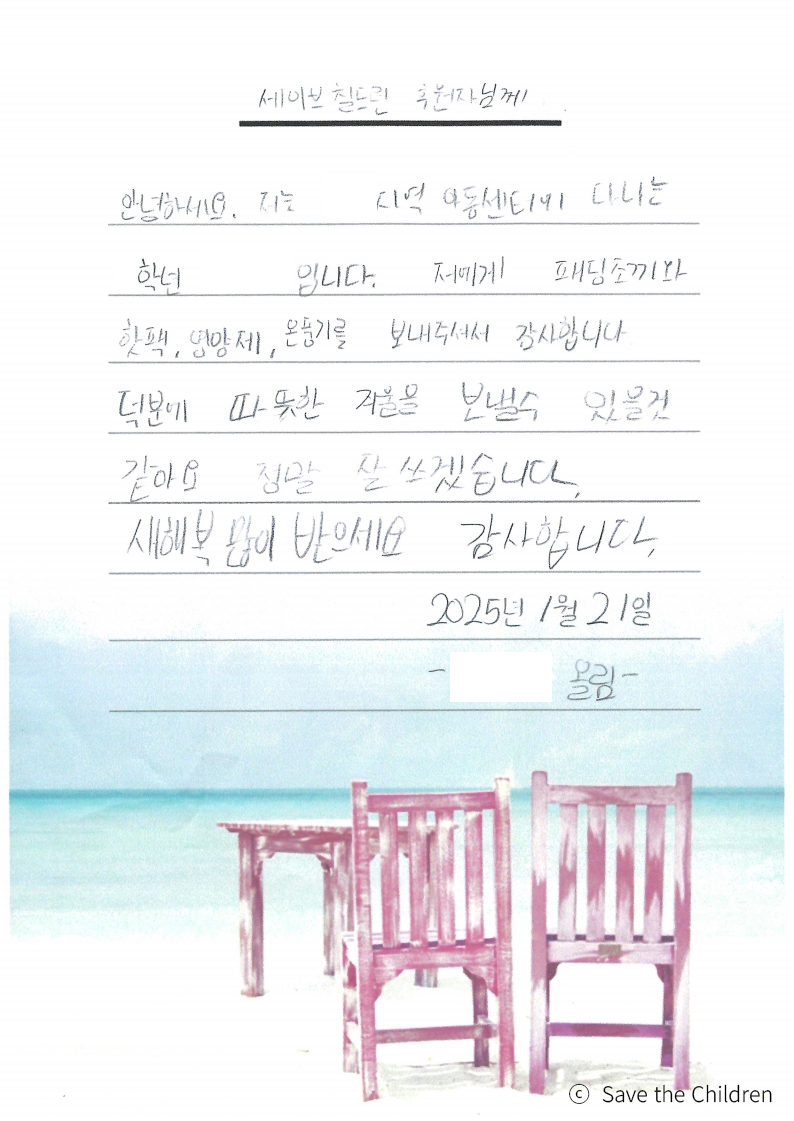 세이브 칠드런 후원자님께
안녕하세요. 저는 지역 아동센터에 다니는
학년 입니다. 저에게 패딩조끼와
핫팩, 영양제, 온풍기를 보내주셔서 감사합니다
덕분에 따뜻한 겨울을 보낼수 있을것
같아요 정말 잘 쓰겠습니다.
새해복 많이 받으세요 감사합니다.
2025년 1월 21일
- 올림-
ⓒ Save the Children